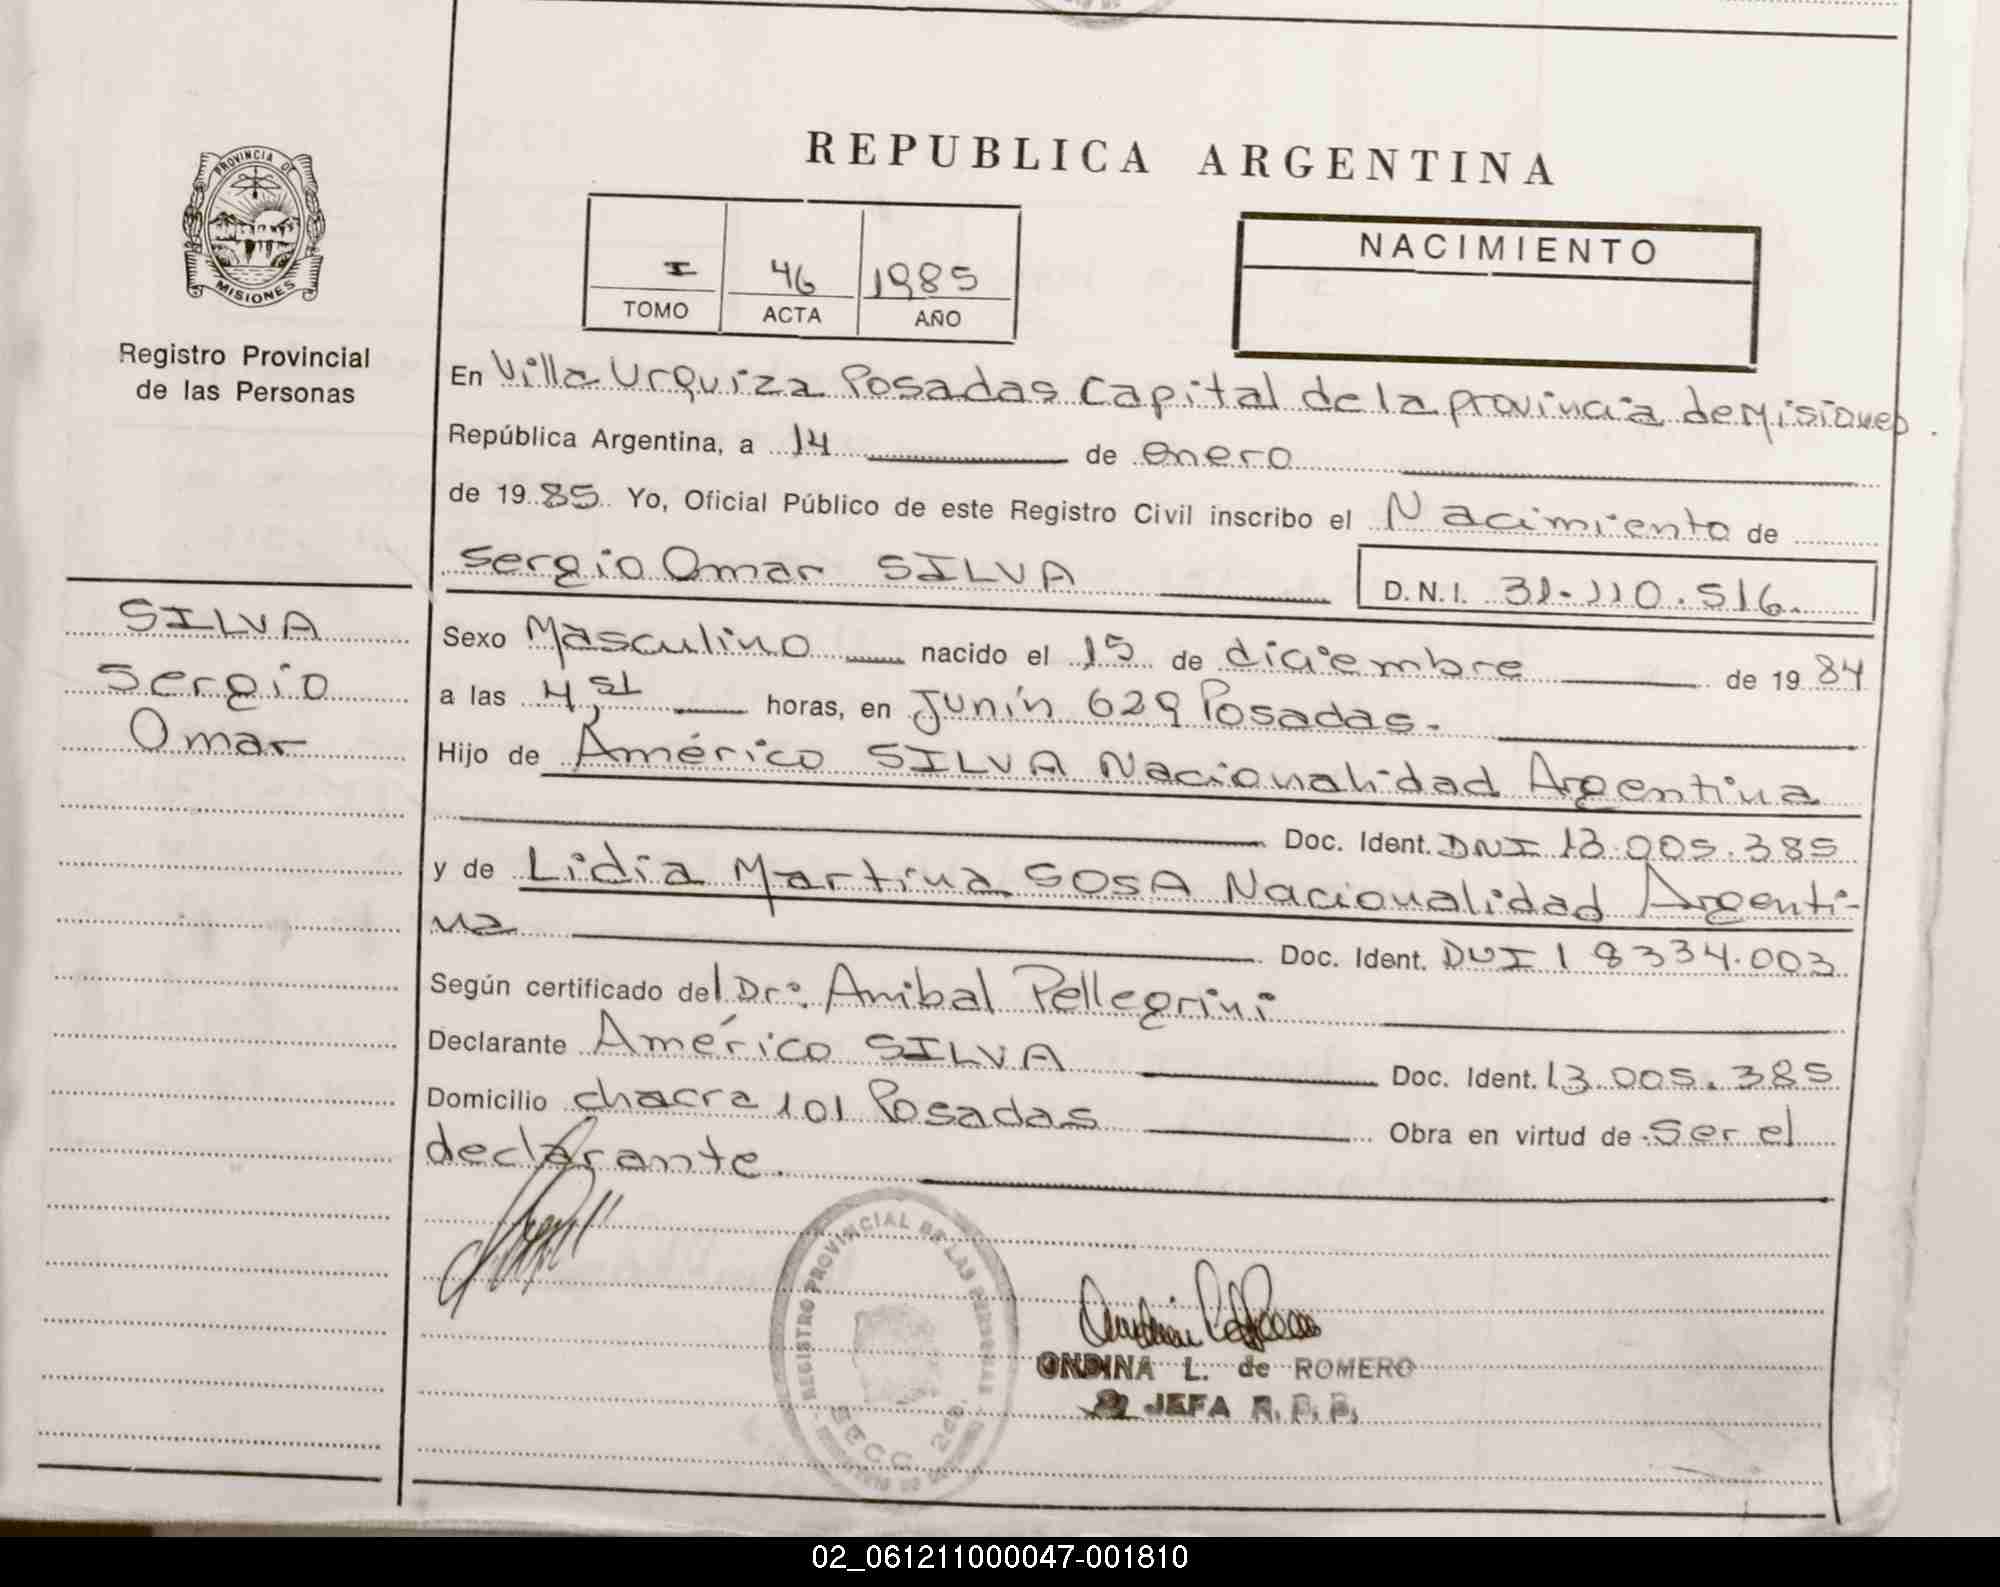 PROVINCIA DE
MISIONES
Registro Provincial
de las Personas
SILVA
Sergio
Omar
REPUBLICA ARGENTINA
I 46 1985
TOMO ACTA AÑO
NACIMIENTO
En Villa Urquiza Posadas Capital de la provincia de Misiones
República Argentina, a 14 de enero
de 1985 Yo, Oficial Público de este Registro Civil inscribo el Nacimiento de
Sergio Omar SILVA D.N.I. 31.110.516.
Sexo Masculino nacido el 15 de diciembre de 1984
a las 4, horas, en Junín 629 Posadas.
Hijo de Américo SILVA Nacionalidad Argentina
Doc. Ident. DNI 13.005.385
y de Lidia Martina SOSA Nacionalidad Argenti-
na Doc. Ident. DNI 18334.003
Según certificado del Dr. Anibal Pellegrini
Declarante Américo SILVA Doc. Ident. 13.005.385
Domicilio chacra 101 Posadas Obra en virtud de ser el
declarante.
REGISTRO PROVINCIAL DE LAS PERSONAS
SECC
ONDINA L. de ROMERO
JEFA R. P. P.
02_061211000047-001810